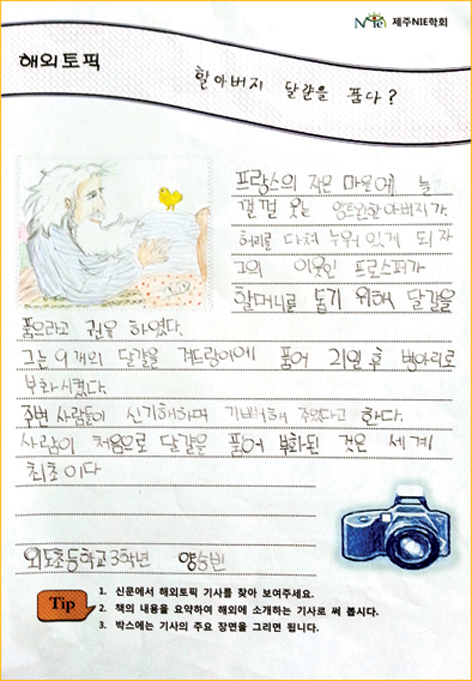 NIe 제주NIE학회
해외토픽
할아버지 달걀을 품다?
프랑스의 작은 마을에 늘
껄껄 웃는 앙트완할아버지가
허리를 다쳐 누워 있게 되자
그의 이웃인 프로스퍼가
할머니를 돕기 위해 달걀을
품으라고 권유 하였다.
그는 9개의 달걀을 겨드랑이에 품어 21일 후 병아리로
부화시켰다.
주변 사람들이 신기해하며 기뻐해 주었다고 한다.
사람이 처음으로 달걀을 품어 부화된 것은 세계
최초이다
외도초등학교 3학년 양승빈
Tip
1. 신문에서 해외토픽 기사를 찾아 보여주세요.
2. 책의 내용을 요약하여 해외에 소개하는 기사로 써 봅시다.
3. 박스에는 기사의 주요 장면을 그리면 됩니다.